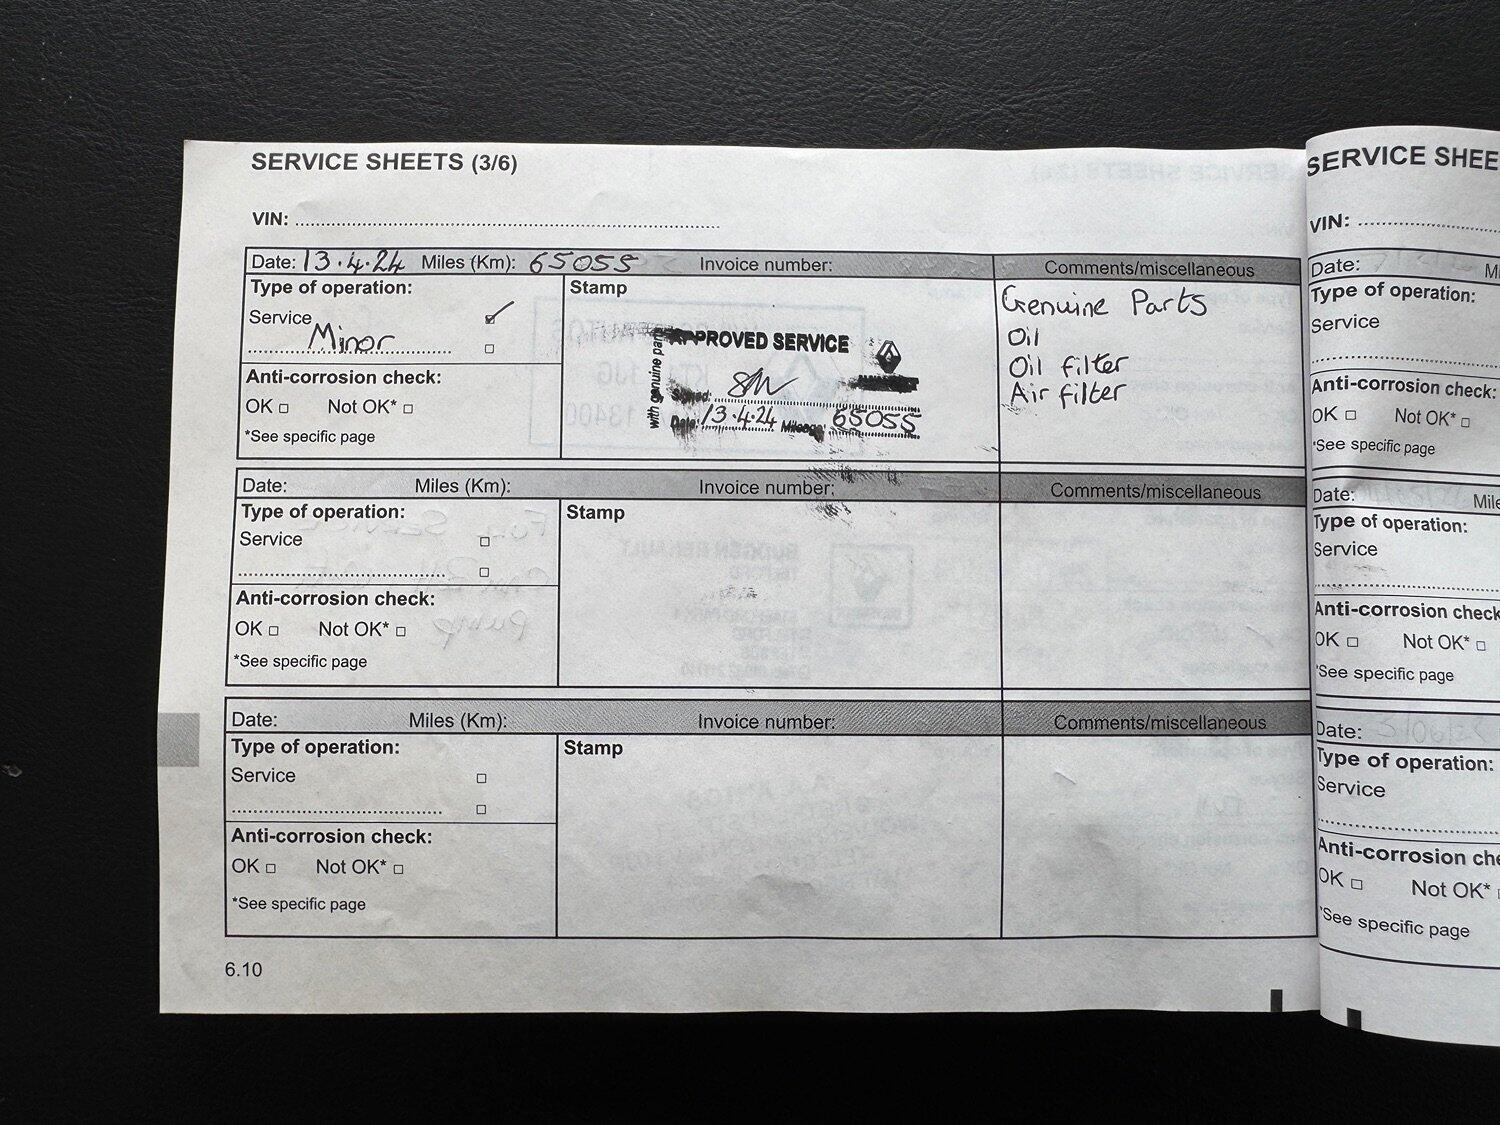 SERVICE SHEETS (3/6)
VIN:
Date: 13.4.24 Miles (Km): 65055 Invoice number: Comments/miscellaneous
Type of operation:
Service
Minor
Anti-corrosion check:
OK Not OK*
*See specific page
Stamp
APPROVED SERVICE
with genuine parts
Signed:
Date: 13.4.24 Mileage: 65055
Genuine Parts
Oil
Oil filter
Air filter
Date: Miles (Km): Invoice number: Comments/miscellaneous
Type of operation:
Service
Anti-corrosion check:
OK Not OK*
*See specific page
Stamp
Date: Miles (Km): Invoice number: Comments/miscellaneous
Type of operation:
Service
Anti-corrosion check:
OK Not OK*
*See specific page
Stamp
6.10
SERVICE SHEE
VIN:
Date: Mi
Type of operation:
Service
Anti-corrosion check:
OK Not OK*
*See specific page
Date: Mile
Type of operation:
Service
Anti-corrosion check
OK Not OK*
*See specific page
Date:
Type of operation:
Service
Anti-corrosion che
OK Not OK*
*See specific page